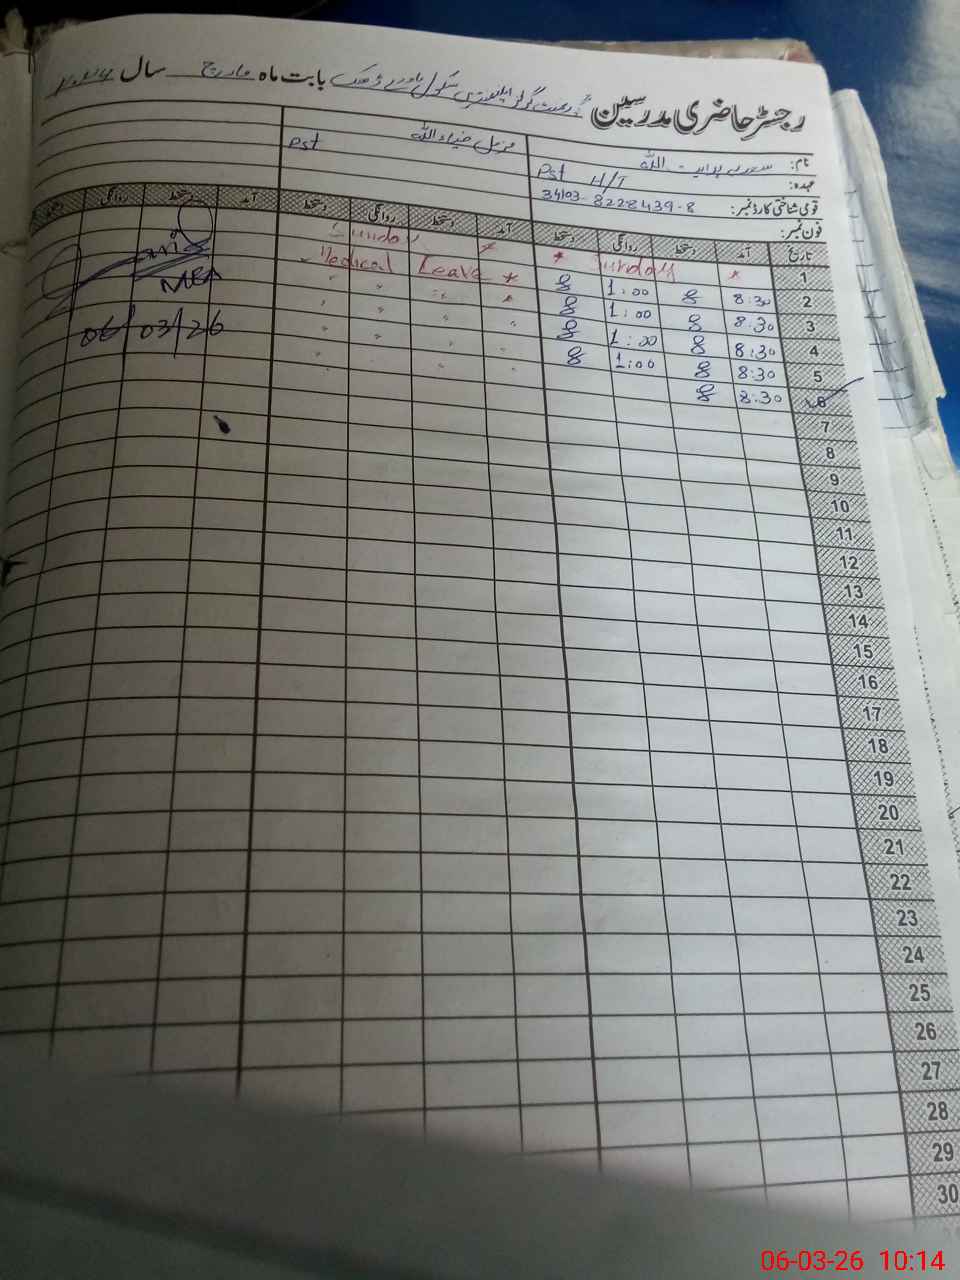 رجسٹر حاضری مدرسین گورنمنٹ گرلز ایلیمنٹری سکول بابت ماہ مارچ سال
نام: ہدایت اللہ
ضیاء اللہ
عہدہ: Pst H/T
Pst
قومی شناختی کارڈ نمبر: 34103-8228439-8
فون نمبر:
تاریخ آمد دستخط روانگی دستخط آمد دستخط روانگی دستخط آمد دستخط روانگی
1 * Sunday * * Sunday
2 8:30 1:00 * Leave Medical
3 8:30 1:00 *
4 8:30 1:00
5 8:30 1:00
6 8:30
MEA
06/03/26
7
8
9
10
11
12
13
14
15
16
17
18
19
20
21
22
23
24
25
26
27
28
29
30
06-03-26 10:14